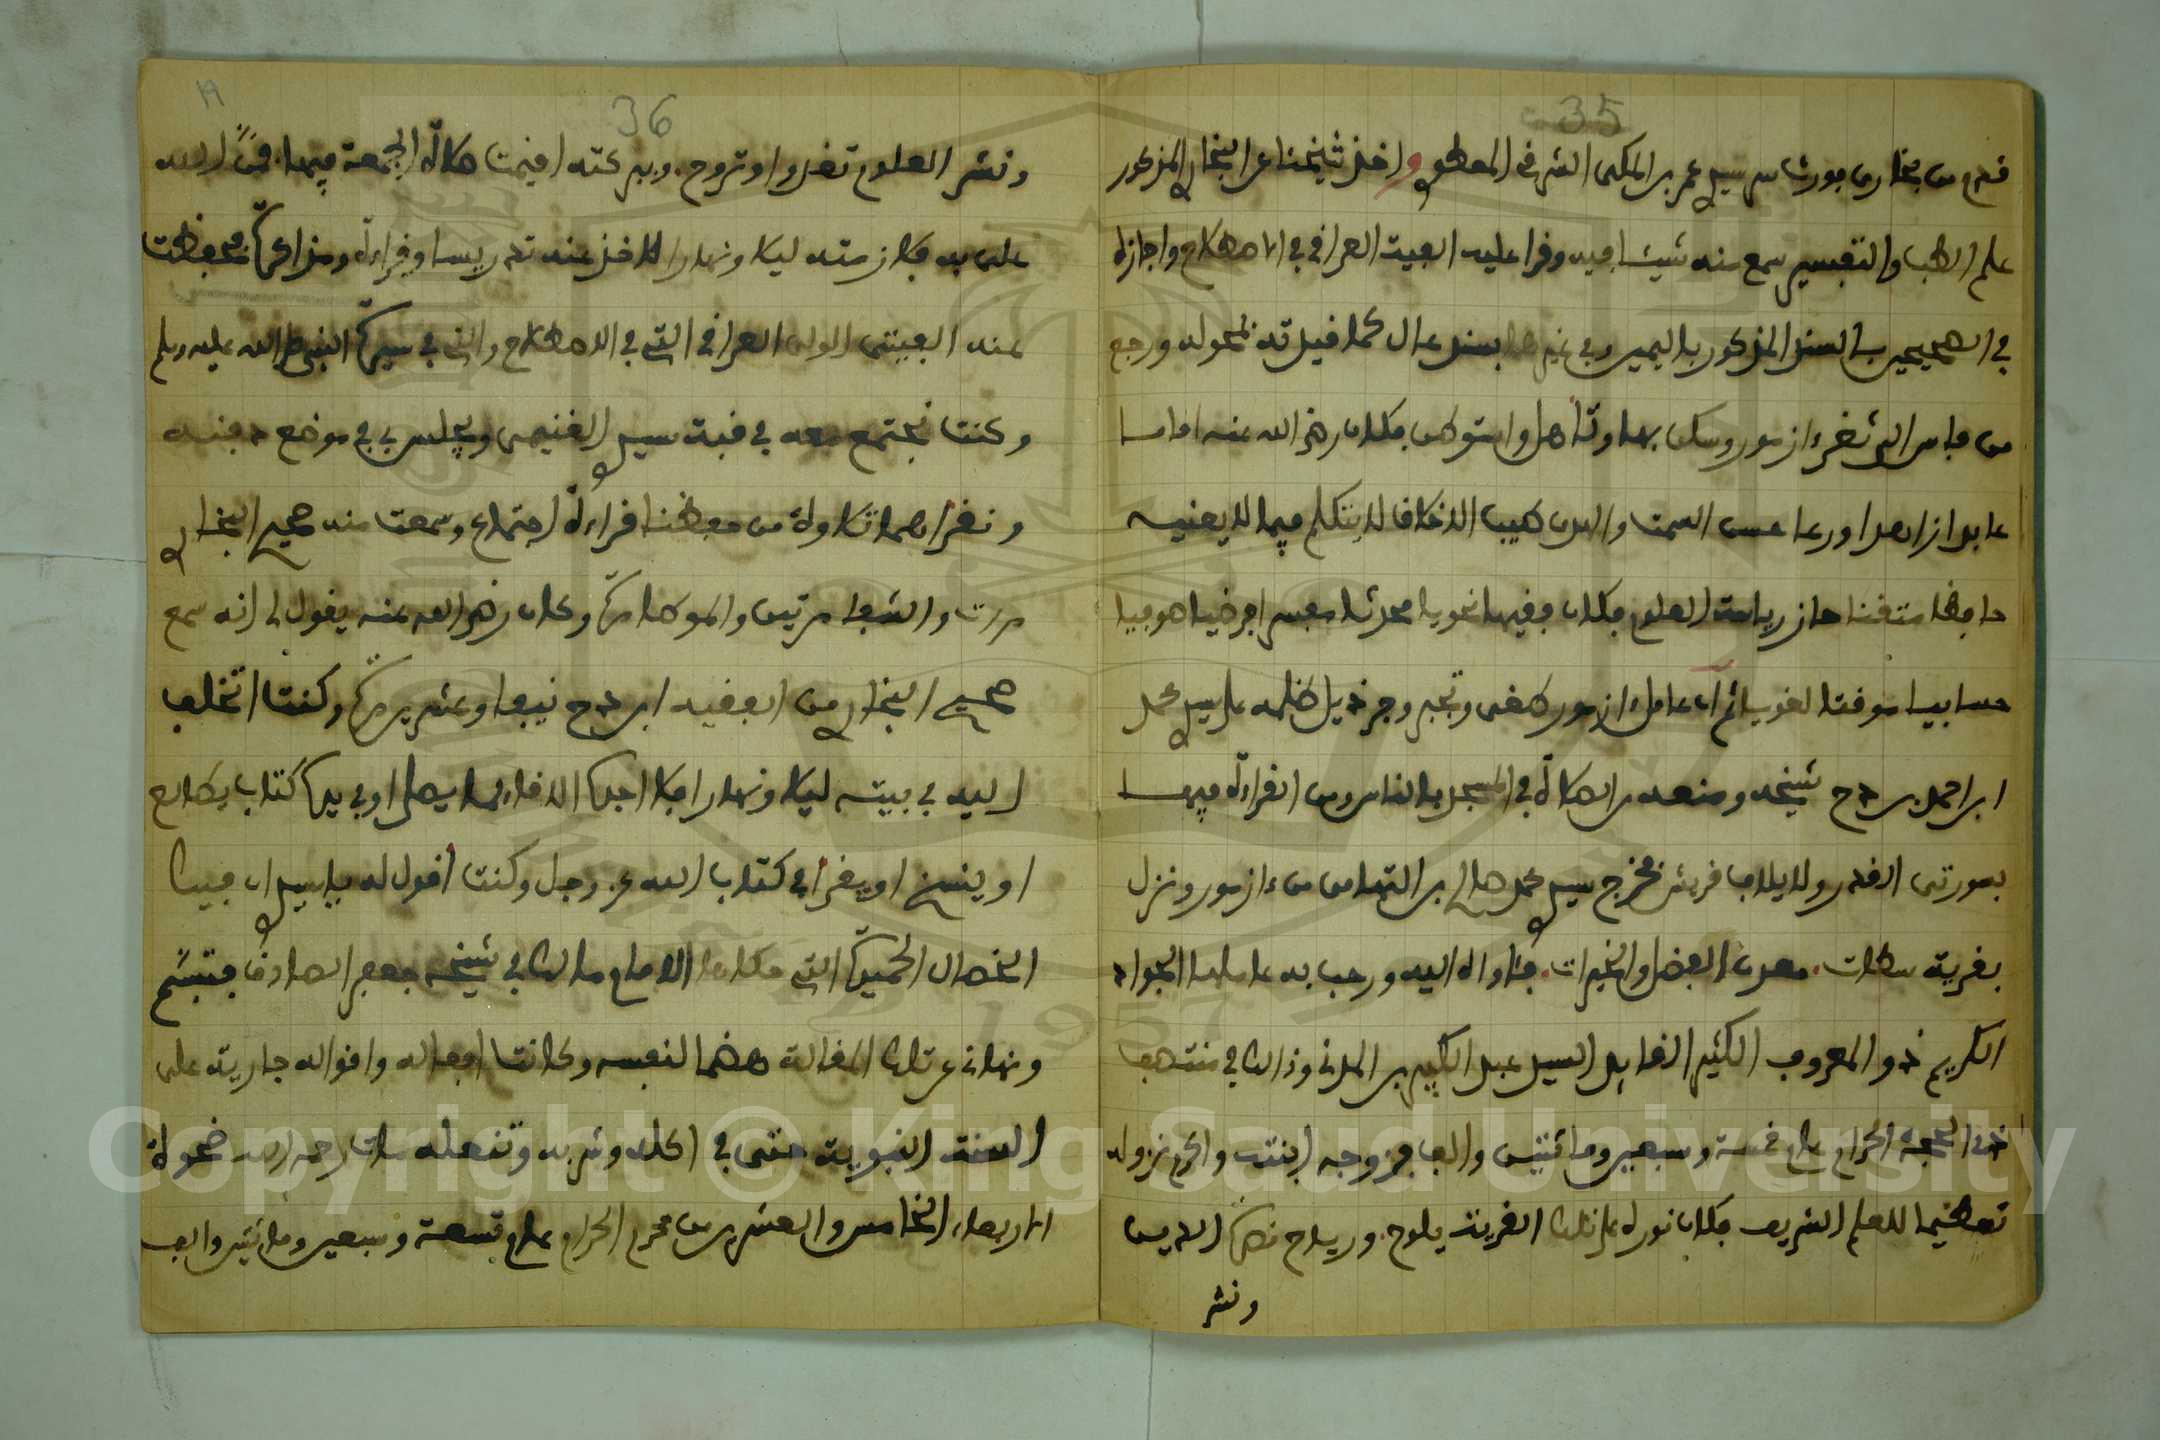 35
قدم من بخارى بورث سر سيدي عمر بن المكي الشرقي المعطوي واخذ شيخنا عن البخاري المذكور
علم الطب والتفسير سمع منه شيئا فيه وقرا عليه الفية العراقي في الاصطلاح واجازه
في الصحيحين بالسند المذكور باليمين وفي غيرهما بسند عال كما قيل قد لحوله ورجع
من فاس الى ثغر ازمور وسكن بها وتاهل واستوطن فكان رضي الله عنه اماما
عابدا زاهدا ورعا حسن السمت والدين طيب الاخلاق لا يتكلم فيما لا يعنيه
حافظا متقنا حاز رياسة العلوم فكان فقيها نحويا محدثا مفسرا فرضيا صوفيا
حسابيا موقتا لغويا ثم ان عامل ازمور طغى وتجبر وجر ذيل ظلمه على سيدي محمد
ابن احمد بن دح شيخه ومنعه من الصلاة في المسجد بالناس ومن القراءة فيها
بسورتي القدر ولايلاف قريش فخرج سيدي محمد صالح بن التهامي من ازمور ونزل
بقرية سطات معدن الفضل والخيرات فئاواه اليه ورحب به عاملها الجواد
الكريم ذو المعروف الكثير القايد السيد عبد الكبير بن المدني وذالك في منتصف
ذي الحجة الحرام عام خمسة وسبعين ومائتين والف فزوجه ابنته واكرم نزوله
تعظيما للعلم الشريف فكان نوره على تلك القرية يلوح ورياح نصرة الدين
ونشر
36
ونشر العلوم تغدوا وتروح وببركته اقيمت صلاة الجمعة فيها فمن الله
علي به فلازمته ليلا ونهارا للاخذ عنه تدريسا وقراءة ومذاكرة فحفظت
عنه الفيتي المولى العراقي التي في الاصطلاح والتي في سيرة النبي صلى الله عليه وسلم
وكنت نجتمع معه في قبة سيدي الغنيمي ويجلس بي في موضع دفنه
ونقرا معا تلاوة من حفظنا قراءة اجتماع وسمعت منه صحيح البخاري
مرات والشفا مرتين والموطا مرة وكان رضي الله عنه يقول لي انه سمع
صحيح البخاري من الفقيه ابن دح نيفا وعشرين مرة وكنت اتخلف
اليه في بيته ليلا ونهارا فلا اجده الا قائما يصلي او في يده كتاب يطالع
او ينسخ او يقرا في كتاب الله عز وجل وكنت اقول له يا سيدي ان فيك
الخصال الحميدة التي حكاها الامام مالك في شيخه جعفر الصادق فتبسم
ونهاني عن تلك المقالة هضما لنفسه وكانت افعاله واقواله جارية على
السنة النبوية حتى في اكله وشربه وتنعله مات رحمه الله ضحوة
الاربعاء الخامس والعشرين من محرم الحرام عام تسعة وسبعين ومائتين والف
Copyright © King Saud University
1957